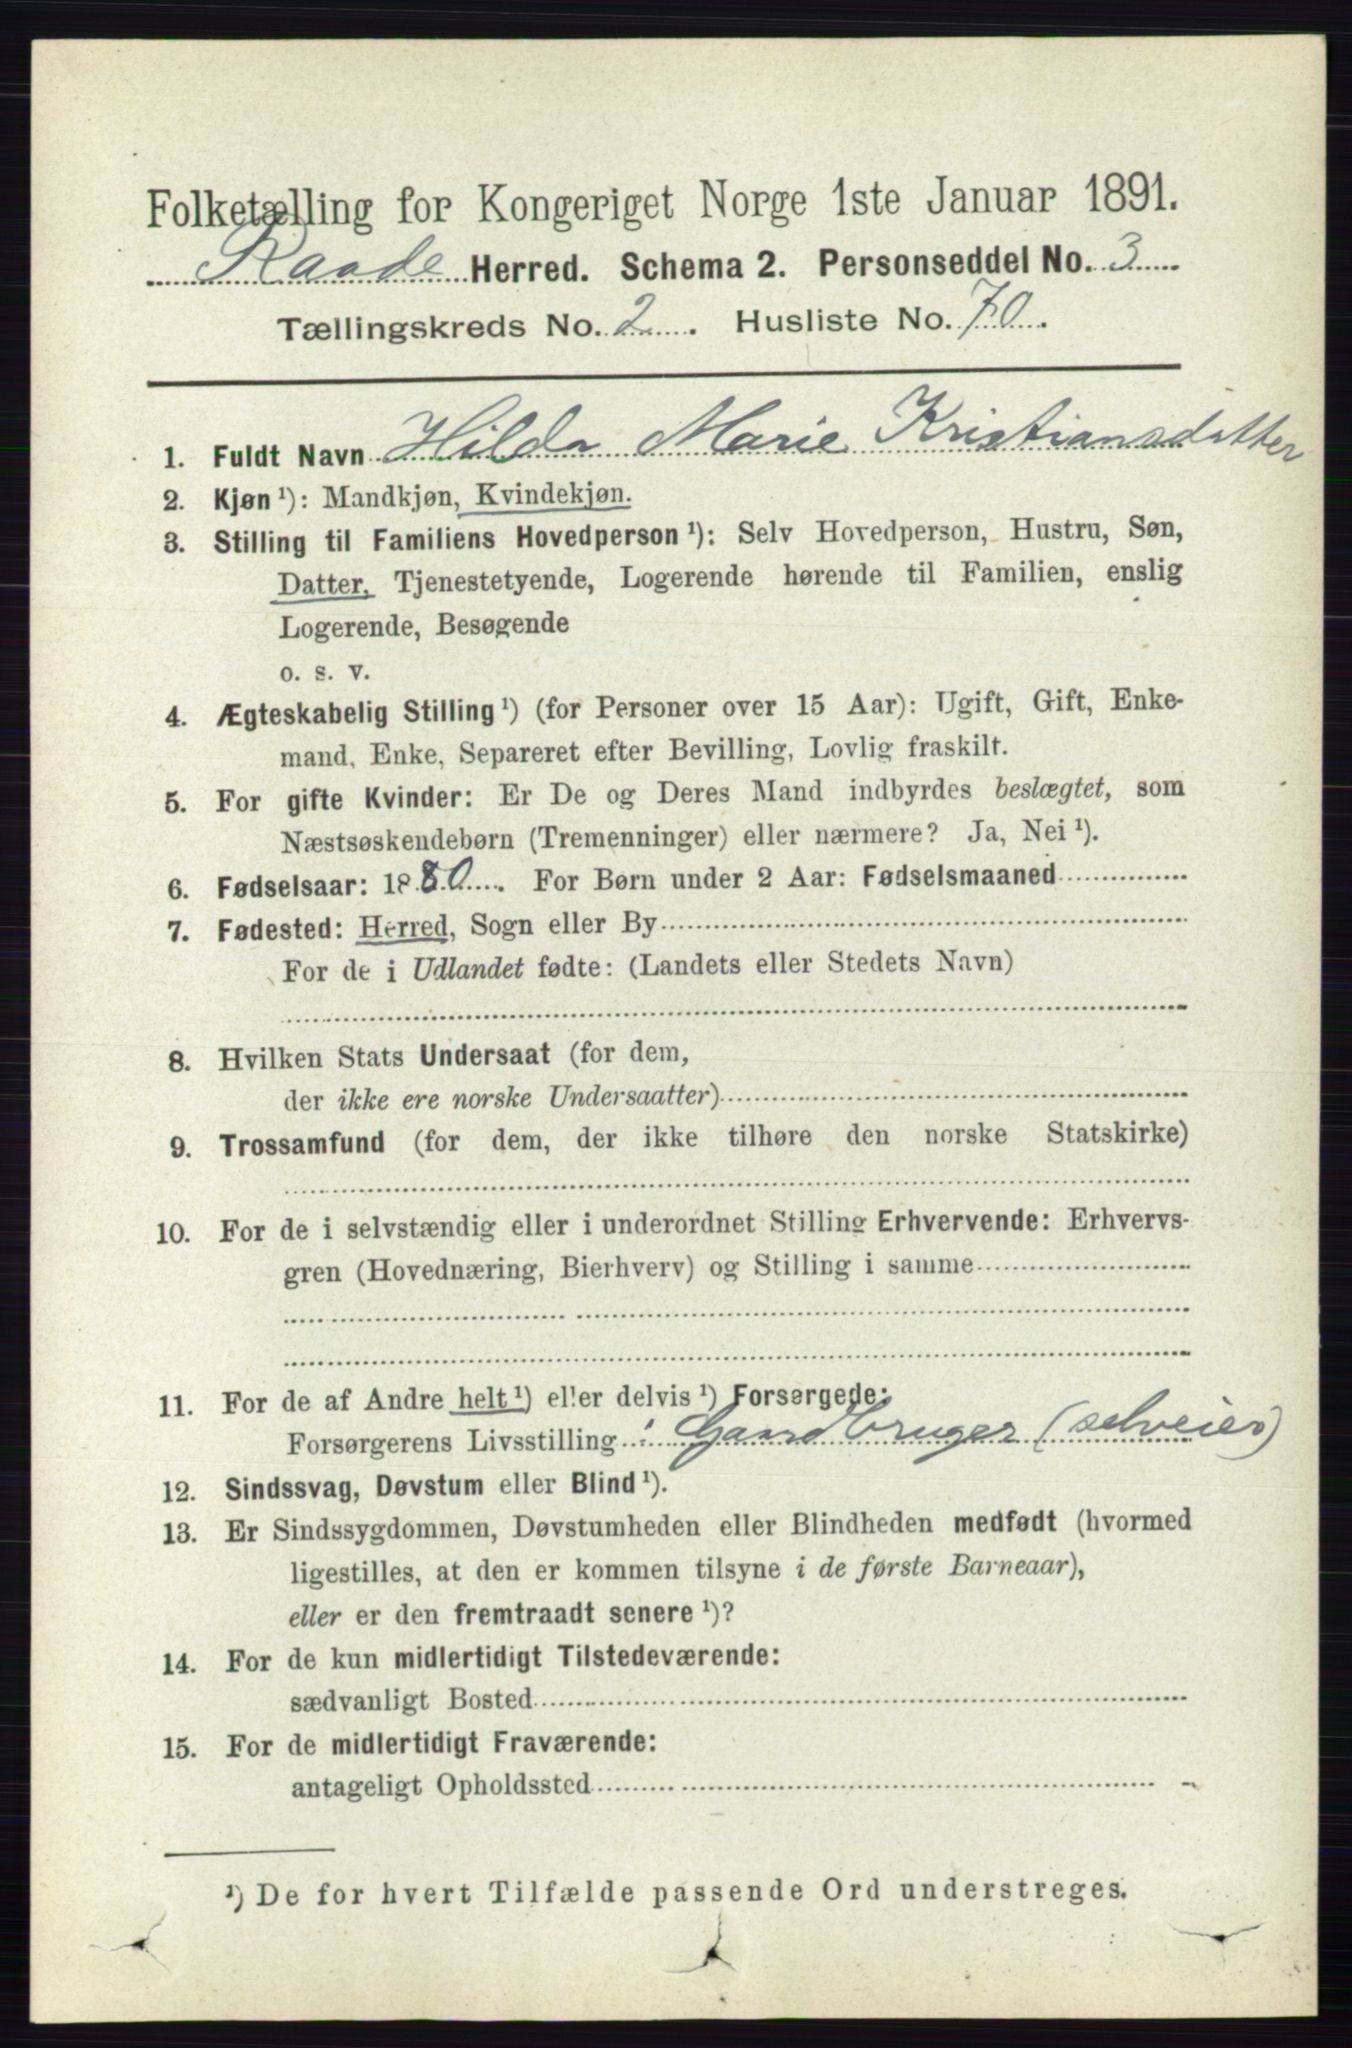 Folketælling for Kongeriget Norge 1ste Januar 1891.
Raade Herred. Schema 2. Personseddel No. 3
Tællingskreds No. 2. Husliste No. 70.
1. Fuldt Navn Hilda Marie Kristiansdatter
2. Kjøn ¹): Mandkjøn, Kvindekjøn.
3. Stilling til Familiens Hovedperson ¹): Selv Hovedperson, Hustru, Søn,
Datter, Tjenestetyende, Logerende hørende til Familien, enslig
Logerende, Besøgende
o. s. v.
4. Ægteskabelig Stilling ¹) (for Personer over 15 Aar): Ugift, Gift, Enke-
mand, Enke, Separeret efter Bevilling, Lovlig fraskilt.
5. For gifte Kvinder: Er De og Deres Mand indbyrdes beslægtet, som
Næstsøskendebørn (Tremenninger) eller nærmere? Ja, Nei ¹).
6. Fødselsaar: 1880. For Børn under 2 Aar: Fødselsmaaned
7. Fødested: Herred, Sogn eller By
For de i Udlandet fødte: (Landets eller Stedets Navn)
8. Hvilken Stats Undersaat (for dem,
der ikke ere norske Undersaatter)
9. Trossamfund (for dem, der ikke tilhøre den norske Statskirke)
10. For de i selvstændig eller i underordnet Stilling Erhvervende: Erhvervs-
gren (Hovednæring, Bierhverv) og Stilling i samme
11. For de af Andre helt ¹) eller delvis ¹) Forsørgede:
Forsørgerens Livsstilling : Gaardbruger (selveier)
12. Sindssvag, Døvstum eller Blind ¹).
13. Er Sindssygdommen, Døvstumheden eller Blindheden medfødt (hvormed
ligestilles, at den er kommen tilsyne i de første Barneaar),
eller er den fremtraadt senere ¹)?
14. For de kun midlertidigt Tilstedeværende:
sædvanligt Bosted
15. For de midlertidigt Fraværende:
antageligt Opholdssted
¹) De for hvert Tilfælde passende Ord understreges.